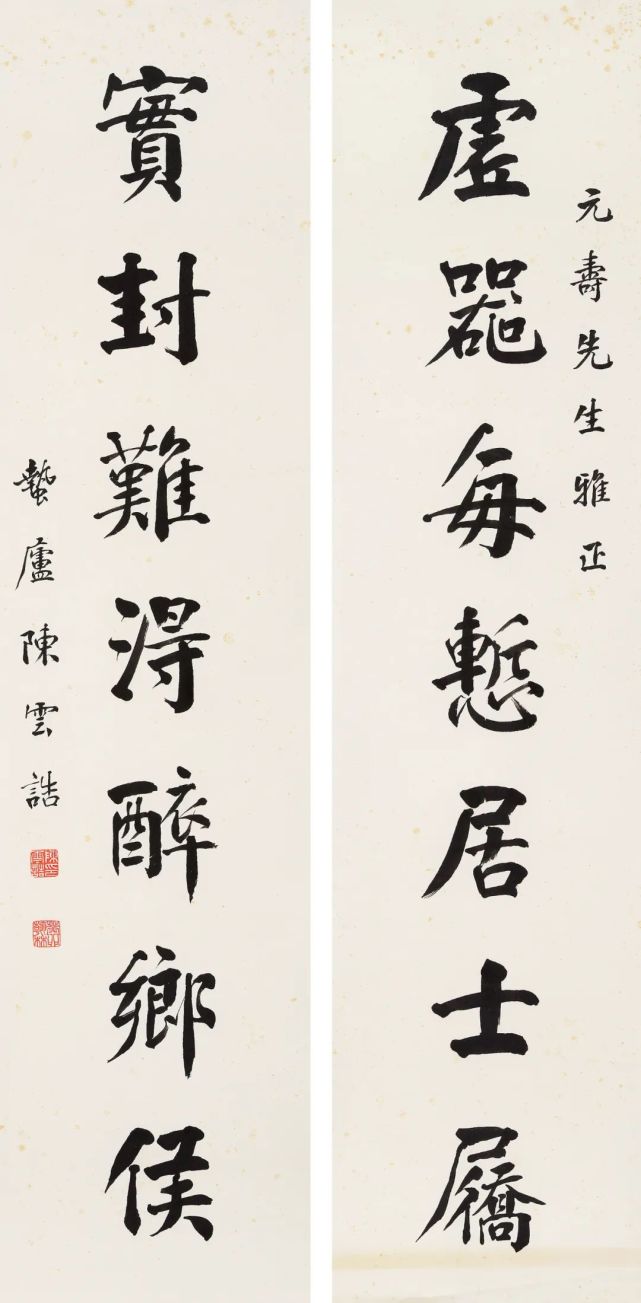 元壽先生雅正
虛器每慙居士屩
實封難得醉鄉侯
蟄廬陳雲誥